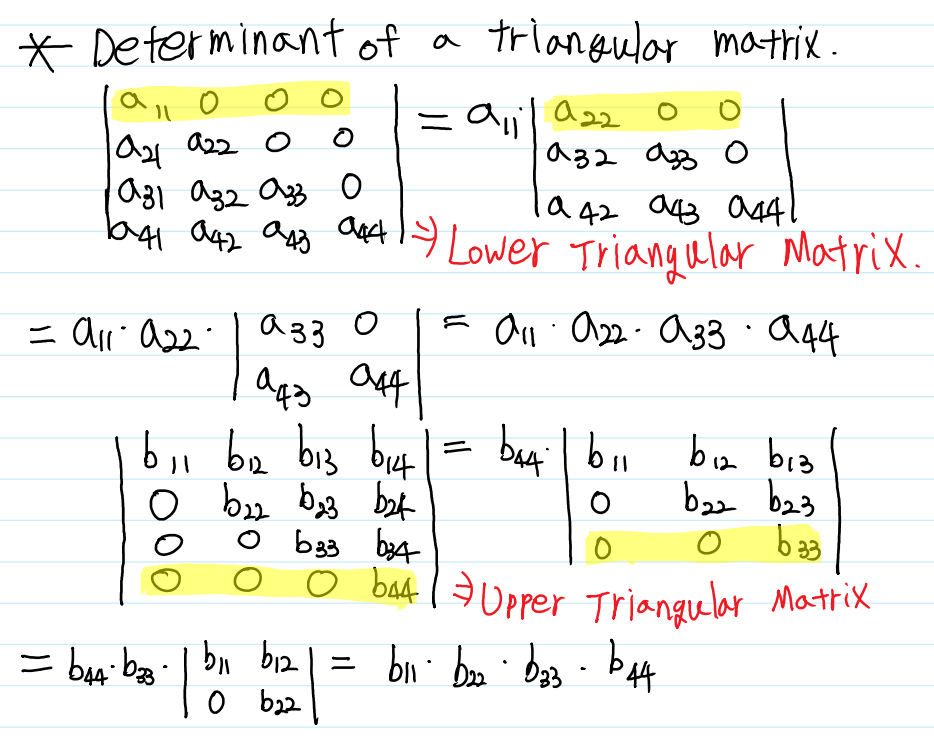 * Determinant of a triangular matrix.
| a11 0 0 0 |
| a21 a22 0 0 |
| a31 a32 a33 0 |
| a41 a42 a43 a44 |
= a11· | a22 0 0 |
| a32 a33 0 |
| a42 a43 a44 |
⇒ Lower Triangular Matrix.
= a11 · a22 · | a33 0 |
| a43 a44 |
= a11 · a22 · a33 · a44
| b11 b12 b13 b14 |
| 0 b22 b23 b24 |
| 0 0 b33 b34 |
| 0 0 0 b44 |
= b44· | b11 b12 b13 |
| 0 b22 b23 |
| 0 0 b33 |
⇒ Upper Triangular Matrix
= b44 · b33 · | b11 b12 |
| 0 b22 |
= b11 · b22 · b33 · b44